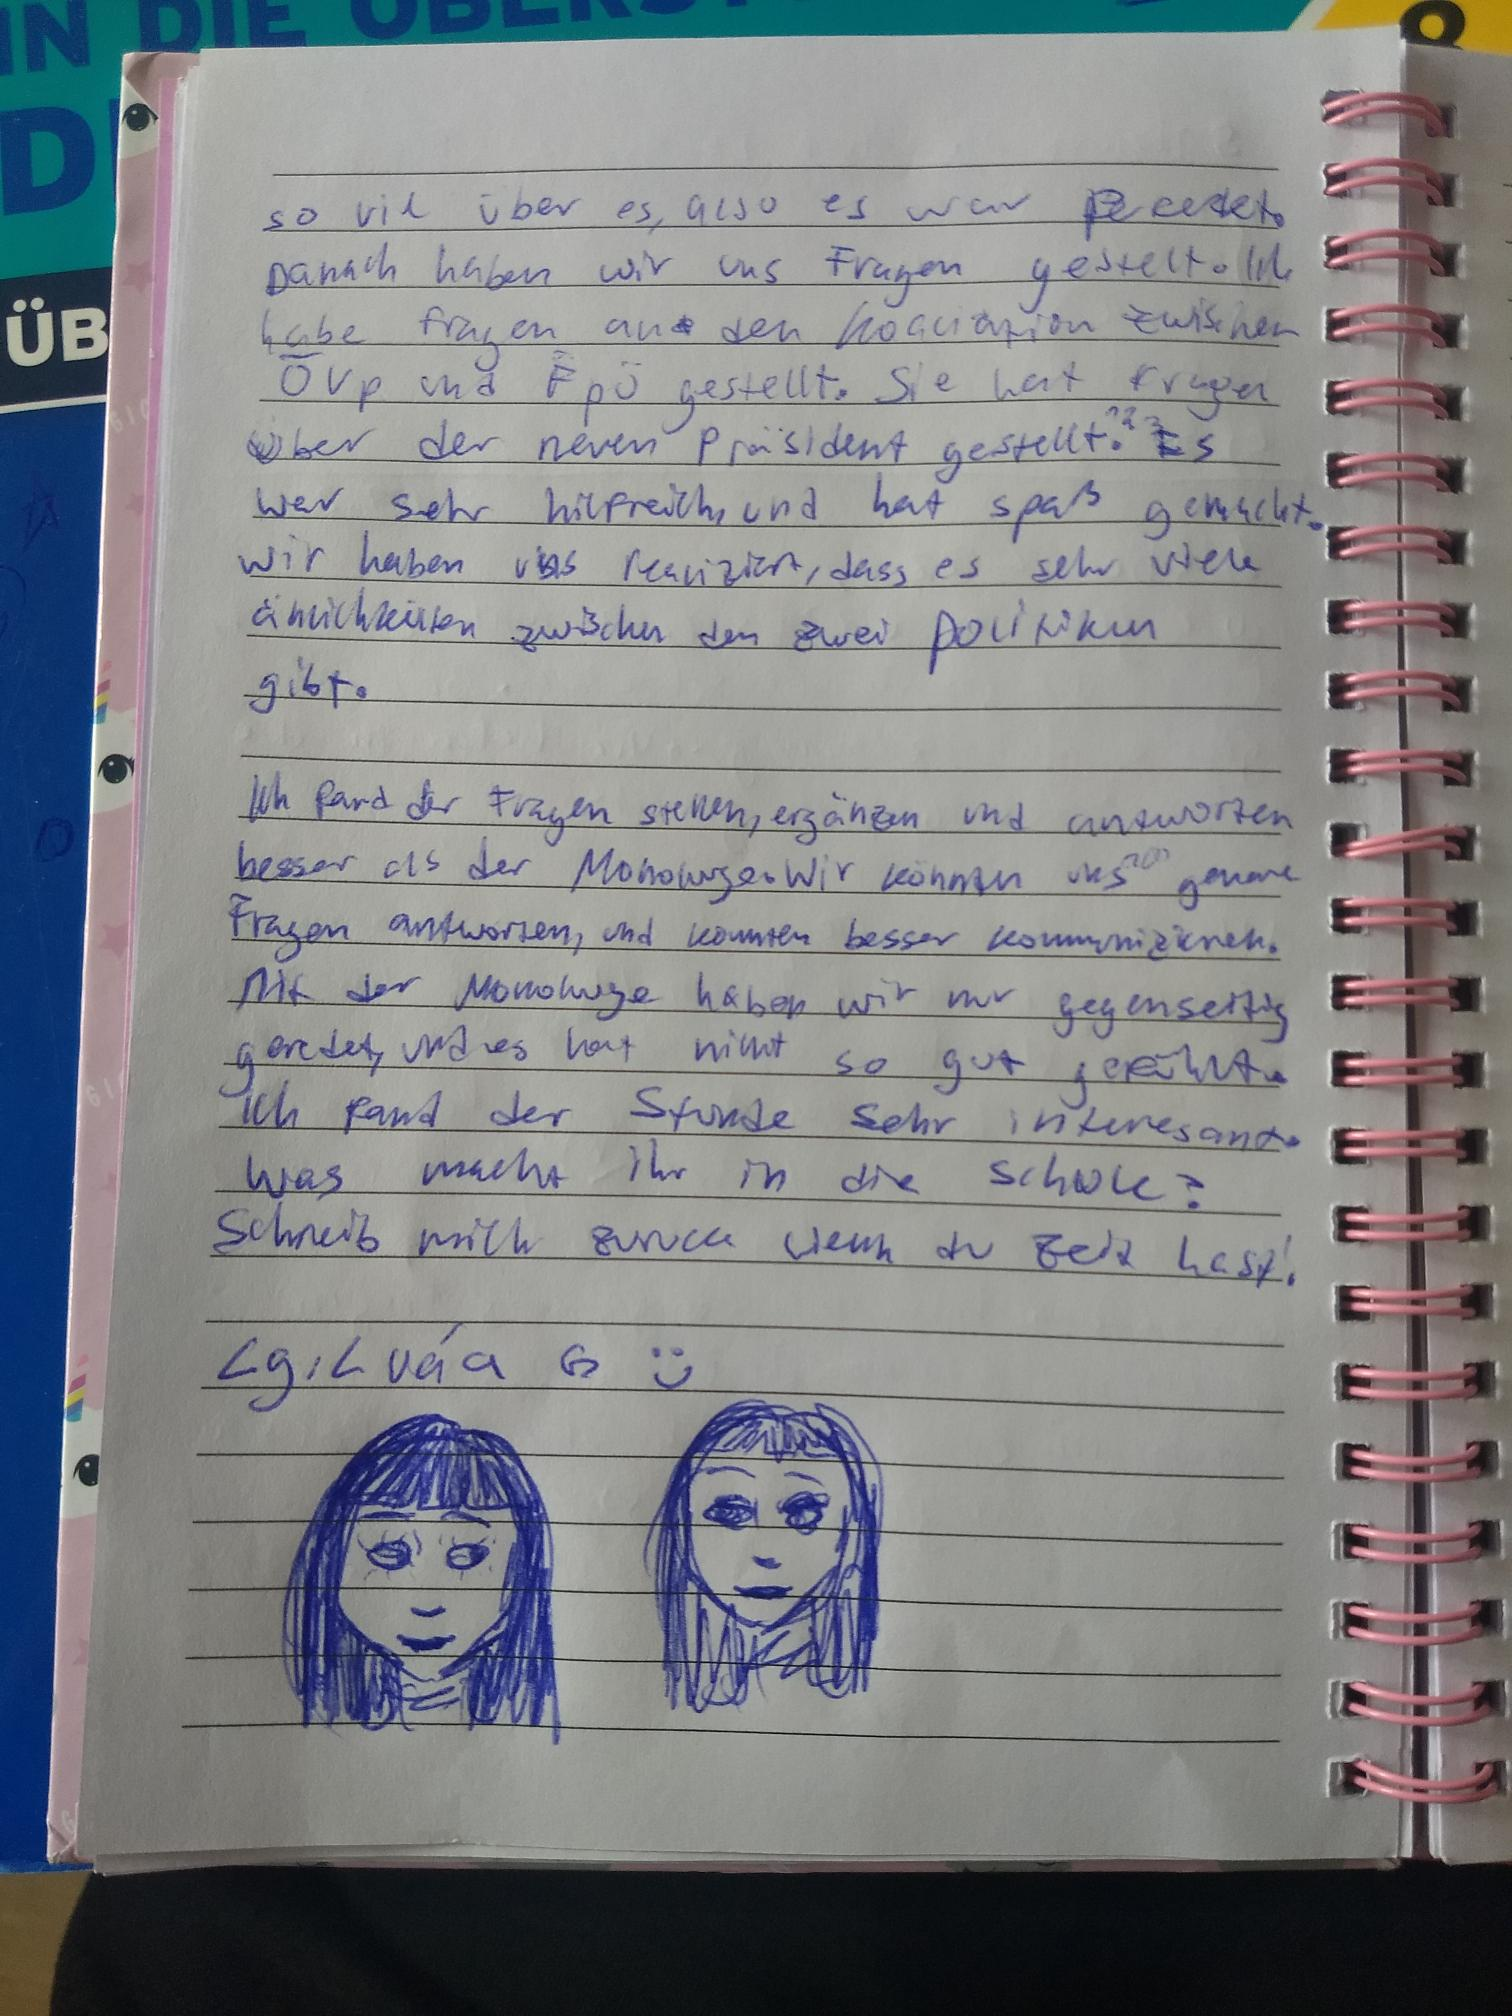 IN DIE ÜBERST
D
ÜB
8
so vil über es, also es war Perfekt.
Danach haben wir uns Fragen gestelt. Ich
habe Fragen an den Koaliation zwischen
ÖVp und FpÖ gestellt. Sie hat Fragen
über der neuen Präsident gestellt. Es
war sehr hilfreich, und hat spaß gemacht.
wir haben uns realiziert, dass es sehr viele
änlichkeiten zwischen den zwei politiken
gibt.
Ich fand der Fragen stellen, ergänzen und antworten
besser als der Monologe. Wir könnten uns genaue
Fragen antworten, und konnten besser kommuniziren.
Mit der Monologe haben wir nur gegenseitig
geredet, und es hat nicht so gut gefühlt.
Ich fand der Stunde sehr interesant.
Was macht ihr in die Schule?
Schreib mich zurück wenn du Zeit hast!
Lg: